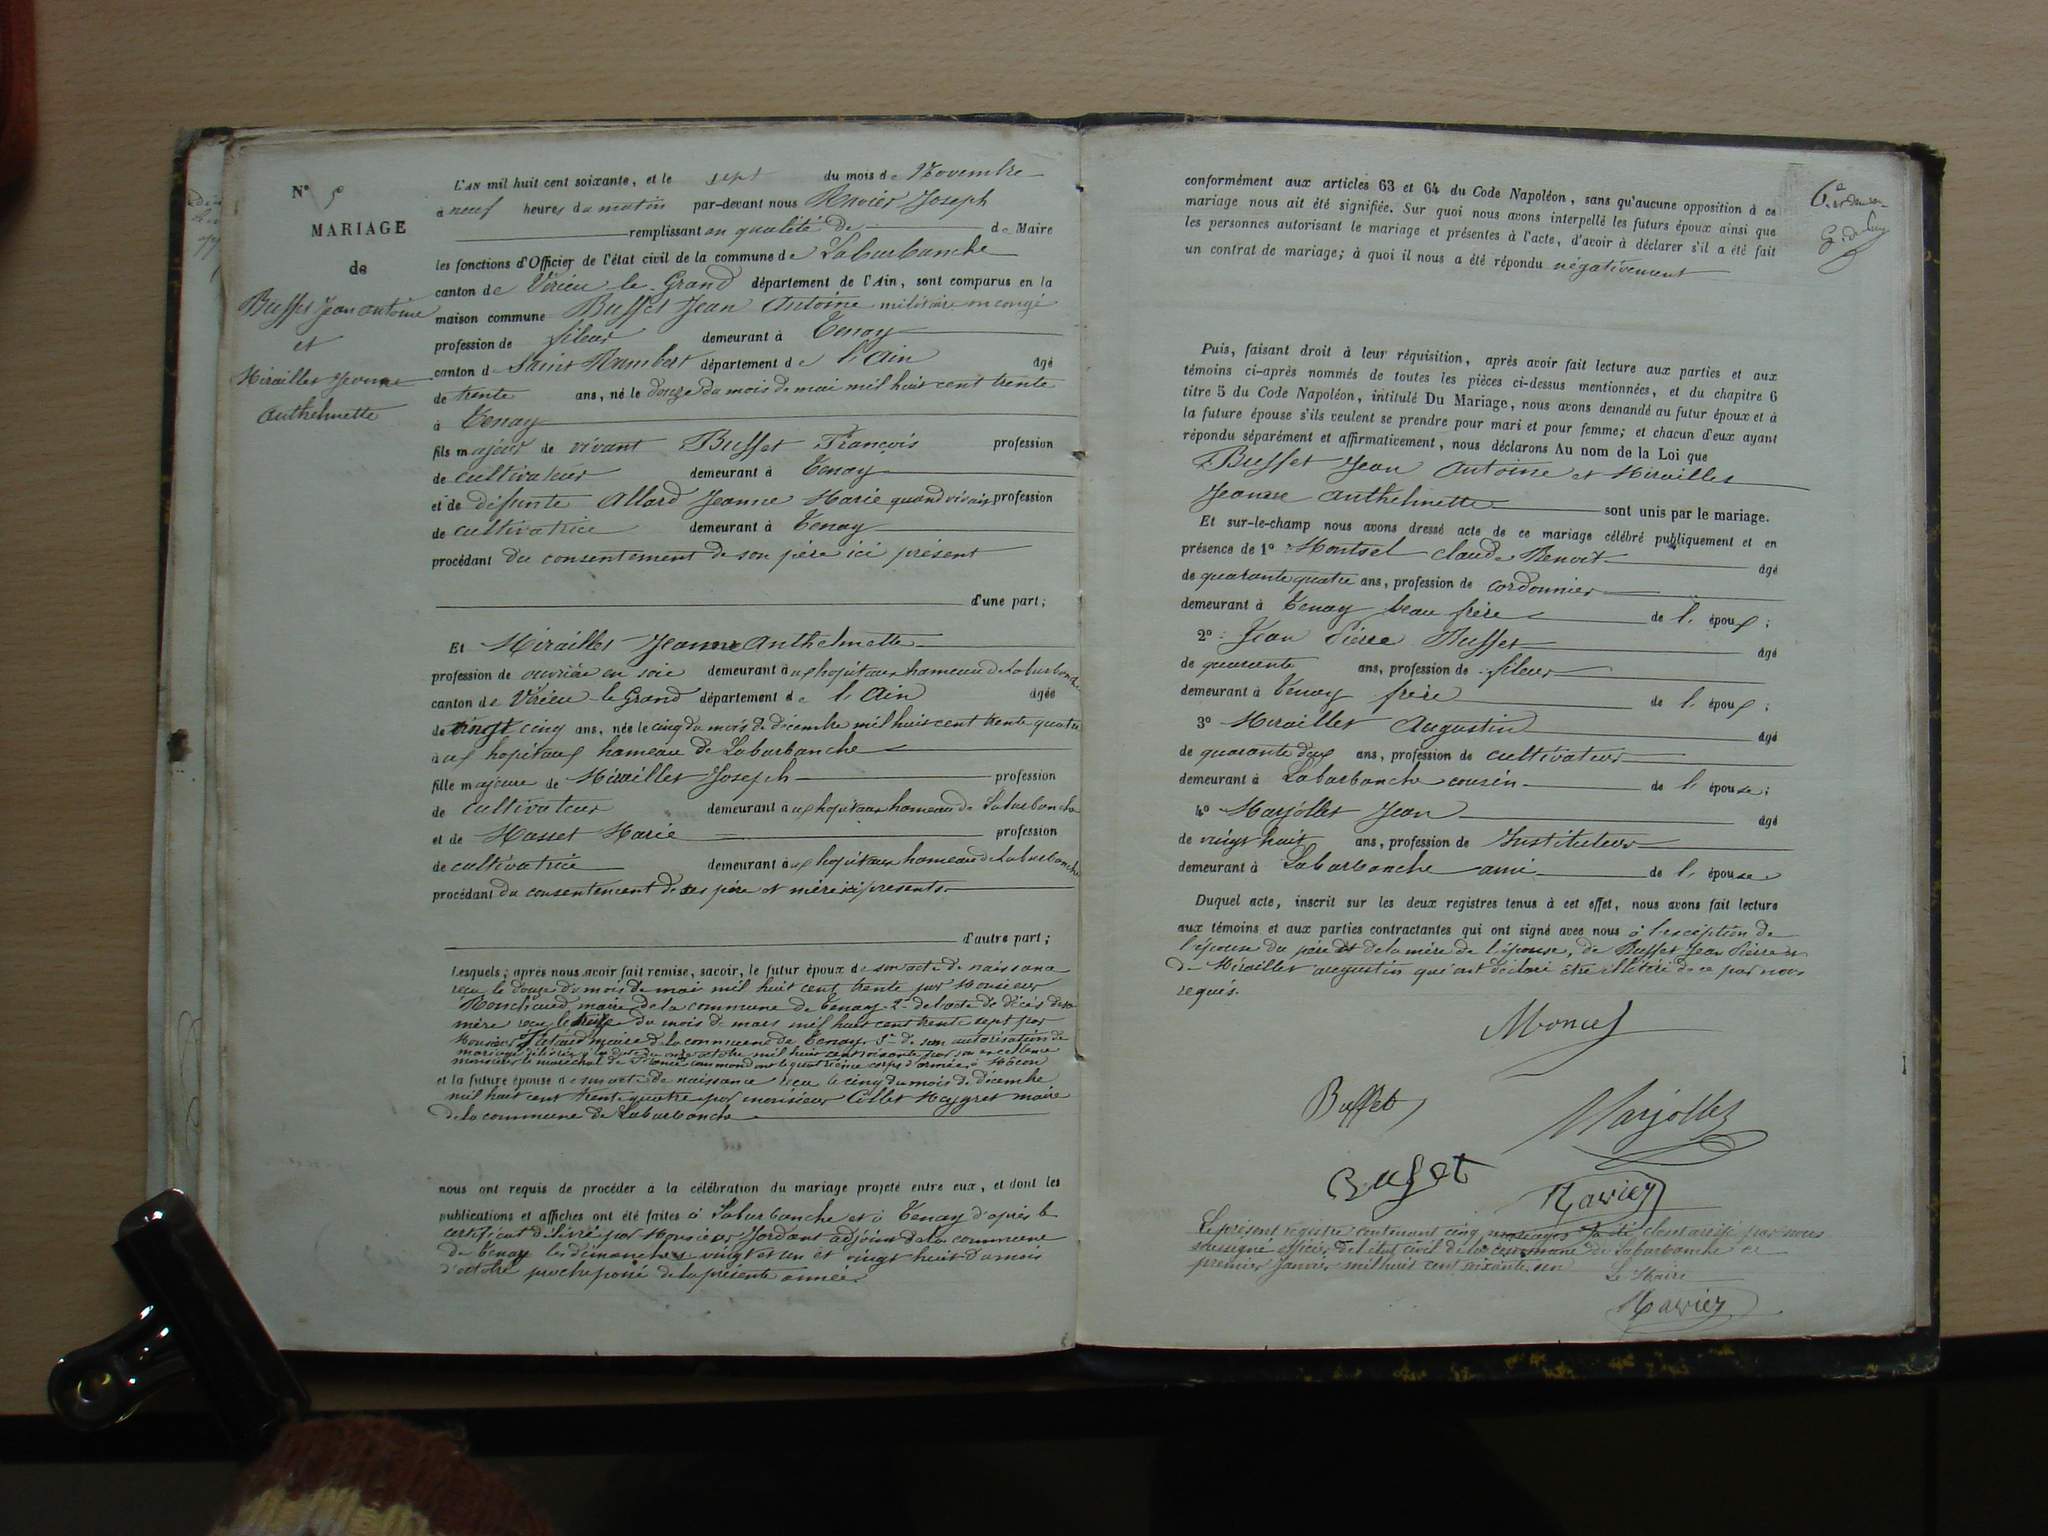 N° 5
MARIAGE
de
Buffet Jean antoine
et
Mirailler Jeanne
Anthelmette
L'AN mil huit cent soixante, et le sept du mois de Novembre
à neuf heures du matin par-devant nous Ravier Joseph
remplissant en qualité de de Maire
les fonctions d'Officier de l'état civil de la commune de Laburbanche
canton de Virieu le Grand département de l'Ain, sont comparus en la
maison commune Buffet Jean Antoine militaire en congé
profession de fileur demeurant à Tenay
canton de Saint Rambert département de l'Ain âgé
de trente ans, né le douze du mois de mai mil huit cent trente
à Tenay
fils majeur de vivant Buffet François profession
de cultivateur demeurant à Tenay
et de défunte Allard Jeanne Marie quand vivait profession
de cultivatrice demeurant à Tenay
procédant du consentement de son père ici présent
d'une part;
Et Mirailler Jeanne Anthelmette
profession de ouvrière en soie demeurant aux hopitaux hameau de Laburbanche
canton de Virieu le Grand département de l'Ain âgée
de vingt cinq ans, née le cinq du mois de décembre mil huit cent trente quatre
aux hopitaux hameau de Laburbanche
fille majeure de Mirailler Joseph profession
de cultivateur demeurant aux hopitaux hameau de Laburbanche
et de Masset Marie profession
de cultivatrice demeurant aux hopitaux hameau de Laburbanche
procédant du consentement de ses père et mère ici présents
d'autre part;
Lesquels, après nous avoir fait remise, savoir, le futur époux de son acte de naissance
reçu le douze du mois de mai mil huit cent trente par Monsieur
maire de la commune de Tenay 2° de l'acte de décès de sa
mère reçu le treize du mois de mars mil huit cent trente sept par
Monsieur maire de la commune de Tenay 3° de son autorisation de
mariage délivrée à la date du onze octobre mil huit cent soixante par son excellence
monsieur le maréchal de France commandant le quatrième corps d'armée à
et la future épouse de son acte de naissance reçu le cinq du mois de décembre
mil huit cent trente quatre par monsieur Collet Meygret maire
de la commune de Laburbanche
nous ont requis de procéder à la célébration du mariage projeté entre eux, et dont les
publications et affiches ont été faites à Laburbanche et à Tenay d'après le
certificat délivré par Monsieur Jordant adjoint de la commune
de Tenay les dimanches vingt et un et vingt huit du mois
d'octobre proche passé de la présente année
conformément aux articles 63 et 64 du Code Napoléon, sans qu'aucune opposition à ce
mariage nous ait été signifiée. Sur quoi nous avons interpellé les futurs époux ainsi que
les personnes autorisant le mariage et présentes à l'acte, d'avoir à déclarer s'il a été fait
un contrat de mariage; à quoi il nous a été répondu négativement
Puis, faisant droit à leur réquisition, après avoir fait lecture aux parties et aux
témoins ci-après nommés de toutes les pièces ci-dessus mentionnées, et du chapitre 6
titre 5 du Code Napoléon, intitulé Du Mariage, nous avons demandé au futur époux et à
la future épouse s'ils veulent se prendre pour mari et pour femme; et chacun d'eux ayant
répondu séparément et affirmativement, nous déclarons Au nom de la Loi que
Buffet Jean Antoine et Mirailler
Jeanne Anthelmette sont unis par le mariage.
Et sur-le-champ nous avons dressé acte de ce mariage célébré publiquement et en
présence de 1° Claude Benoit âgé
de quarante quatre ans, profession de cordonnier
demeurant à Tenay beau frère de l'époux;
2° Jean Pierre Buffet âgé
de quarante ans, profession de fileur
demeurant à Tenay frère de l'époux;
3° Mirailler Augustin âgé
de quarante deux ans, profession de cultivateur
demeurant à Laburbanche cousin de l'épouse;
4° Marjollet Jean âgé
de vingt huit ans, profession de Instituteur
demeurant à Laburbanche ami de l'épouse
Duquel acte, inscrit sur les deux registres tenus à cet effet, nous avons fait lecture
aux témoins et aux parties contractantes qui ont signé avec nous à l'exception de
l'épouse du père et de la mère de l'épouse, de Buffet Jean Pierre et
de Mirailler augustin qui ont déclaré être illitéré de ce par nous
requis.
Buffet
Marjollet
Bufet
Ravier
Le présent registre contenant cinq mariages a été clos et arrêté par nous
soussigné officier de l'état civil de la commune de Laburbanche ce
premier Janvier mil huit cent soixante un
Le Maire
Ravier